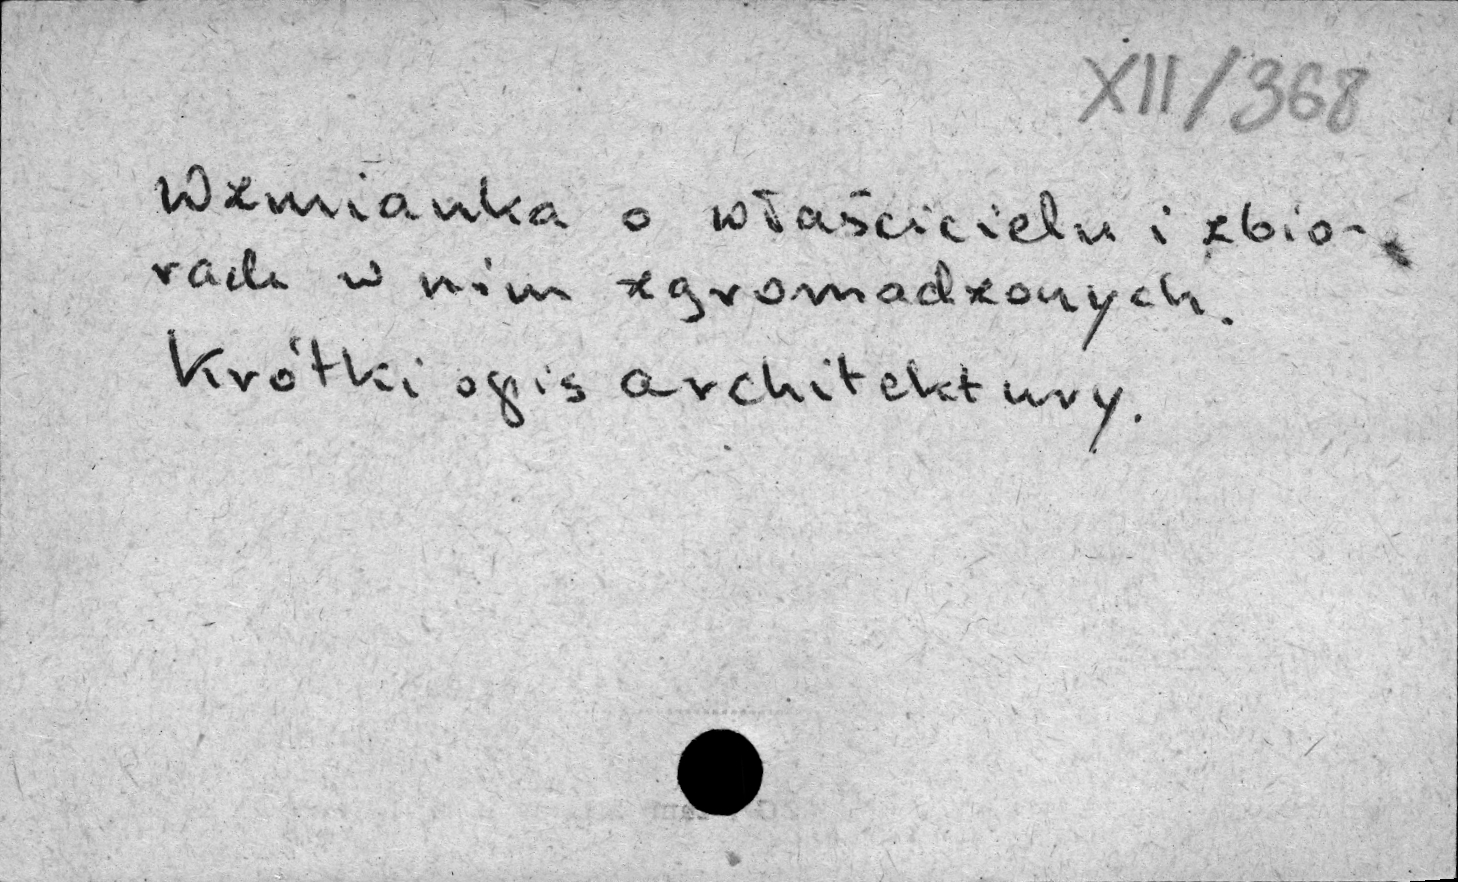 XII/368
Wzmianka o właścicielu i zbio-
rach w nim zgromadzonych.
Krótki opis architektury.